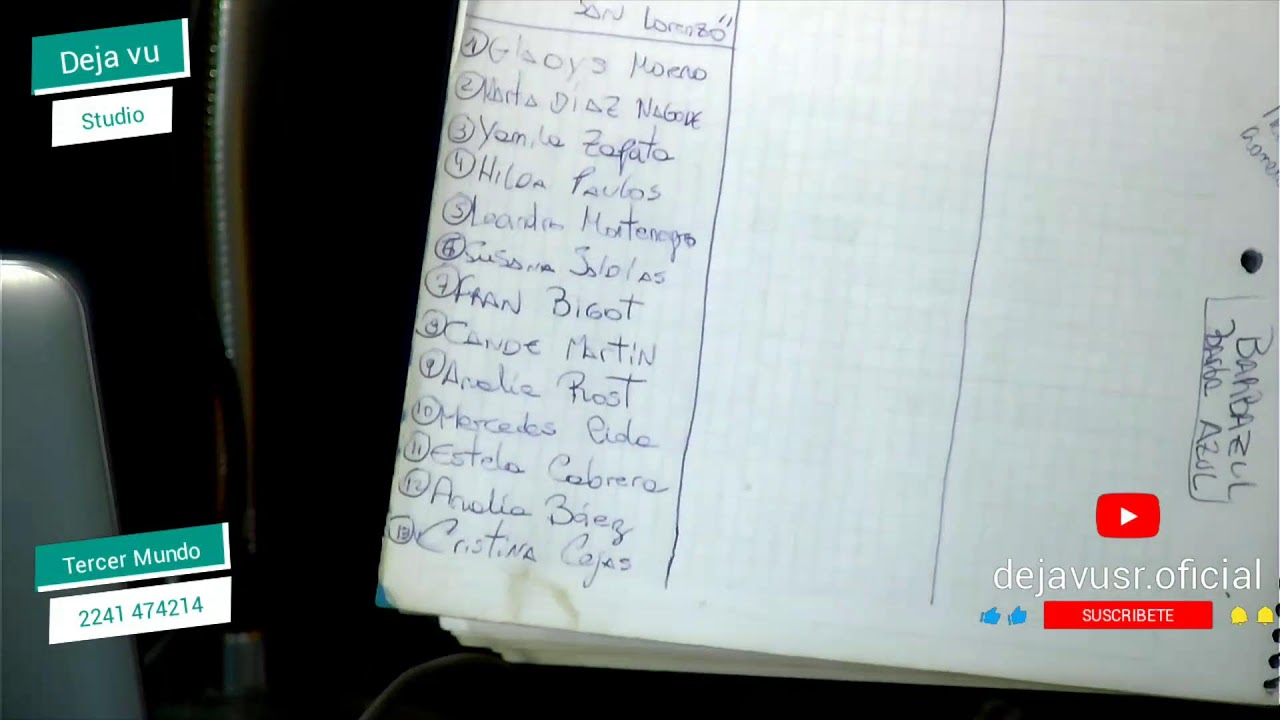 Deja vu
Studio
SAN Lorenzo"
① Gladys Moreno
② Marta DIAZ NAGODE
③ Yamila Zapata
④ Hilda Paulos
⑤ Leandro Montenegro
⑥ Susana
⑦ FRAN BIGOT
⑧ CANDE MartiN
⑨ Analia Rost
⑩ Mercedes
⑪ Estela Cabrera
⑫ Analía Báez
⑬ CristiNA Cejas
BARBAZUL
Barba AZUL
Tercer Mundo
2241 474214
dejavusr.oficial
SUSCRIBETE